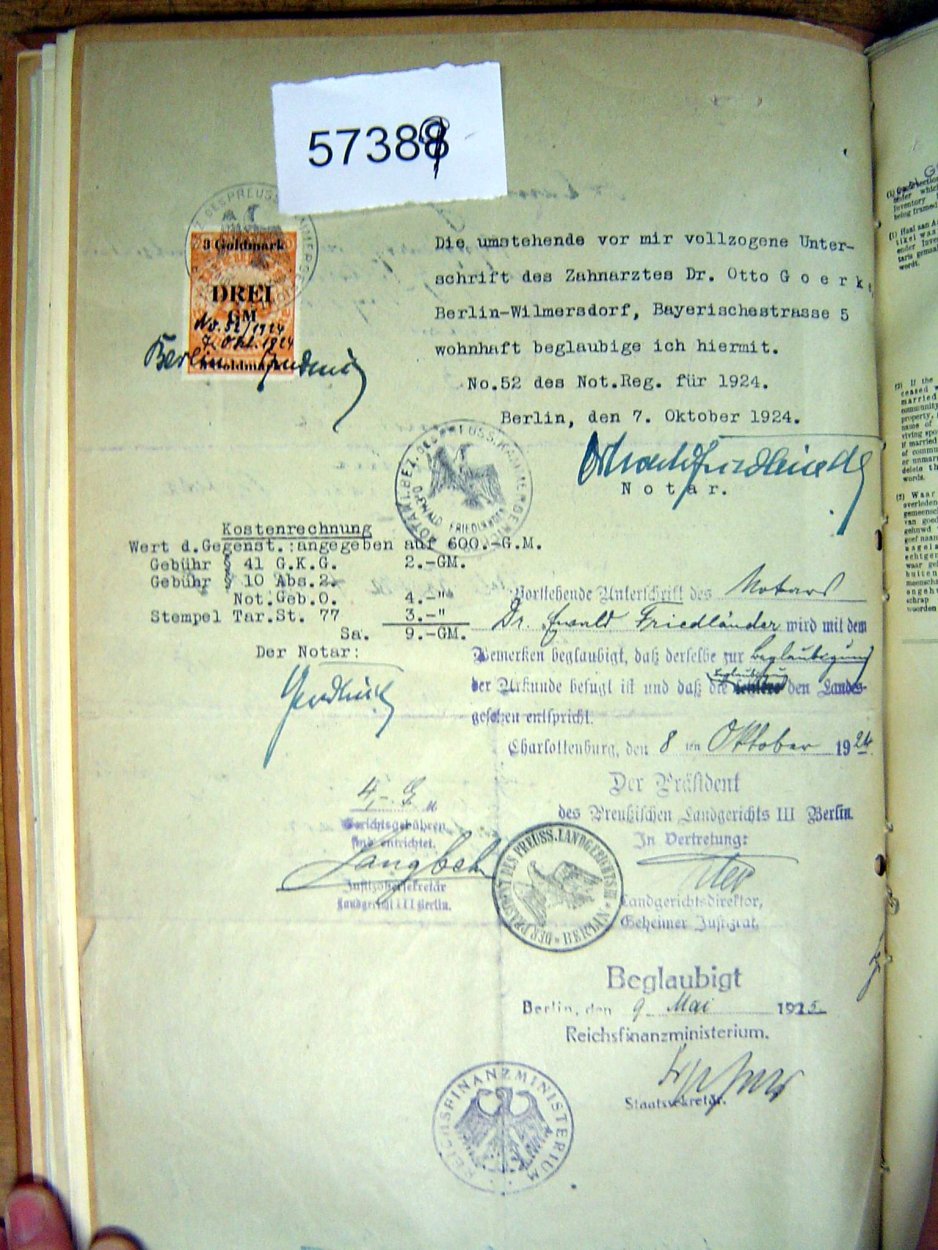 57389
3 Goldmark
DREI
GM
No. 52/1924
7. Okt. 1924
Berlin
Die umstehende vor mir vollzogene Unter-
schrift des Zahnarztes Dr. Otto G o e r k
Berlin-Wilmersdorf, Bayerischestrasse 5
wohnhaft beglaubige ich hiermit.
No.52 des Not.Reg. für 1924.
Berlin, den 7. Oktober 1924.
N o t a r.
NOTAR I. BEZ. DES PREUSS. KAMMERGERICHTS
FRIEDLÄNDER
Kostenrechnung
Wert d.Gegenst.:angegeben auf 600.-G.M.
Gebühr § 41 G.K.G. 2.-GM.
Gebühr § 10 Abs.2.
Not.Geb.O. 4.-"
Stempel Tar.St. 77 3.-"
Sa. 9.-GM.
Der Notar:
Vorstehende Unterschrift des Notars
Dr. Ewald Friedländer wird mit dem
Bemerken beglaubigt, daß derselbe zur Beglaubigung
der Urkunde befugt ist und daß die Beglaubigung den Landes-
gesetzen entspricht.
Charlottenburg, den 8 ten Oktober 1924
Der Präsident
des Preußischen Landgerichts III Berlin.
In Vertretung:
Landgerichtsdirektor,
Geheimer Justizrat.
4,-
Gerichtsgebühren
sind entrichtet.
Langbehn
Justizobersekretär
Landgericht III Berlin.
DER PRÄSIDENT DES PREUSS. LANDGERICHTS III BERLIN
Beglaubigt
Berlin, den 9. Mai 1925.
Reichsfinanzministerium.
Staatssekretär.
REICHSFINANZMINISTERIUM